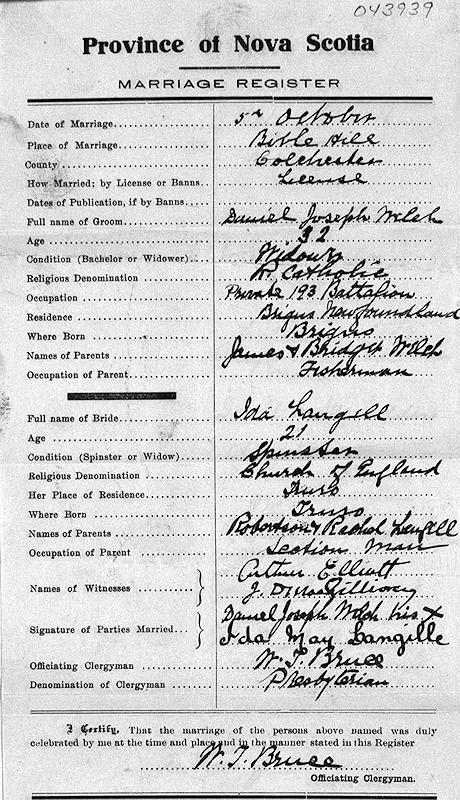 043939
Province of Nova Scotia
MARRIAGE REGISTER
Date of Marriage 5th October
Place of Marriage Bible Hill
County Colchester
How Married; by License or Banns License
Dates of Publication, if by Banns
Full name of Groom Daniel Joseph Welch
Age 32
Condition (Bachelor or Widower) Widower
Religious Denomination R. Catholic
Occupation Private 193 Battalion
Residence Brigus Newfoundland
Where Born Brigus
Names of Parents James & Bridget Welch
Occupation of Parent Fisherman
Full name of Bride Ida Langill
Age 21
Condition (Spinster or Widow) Spinster
Religious Denomination Church of England
Her Place of Residence Truro
Where Born Truro
Names of Parents Robertson & Rachel Langill
Occupation of Parent Section Man
Names of Witnesses Arthur Elliott
J. D. MacGillivray
Signature of Parties Married Daniel Joseph Welch his X
Ida May Langille
Officiating Clergyman W. T. Bruce
Denomination of Clergyman Presbyterian
I Certify, That the marriage of the persons above named was duly
celebrated by me at the time and place and in the manner stated in this Register
W. T. Bruce
Officiating Clergyman.